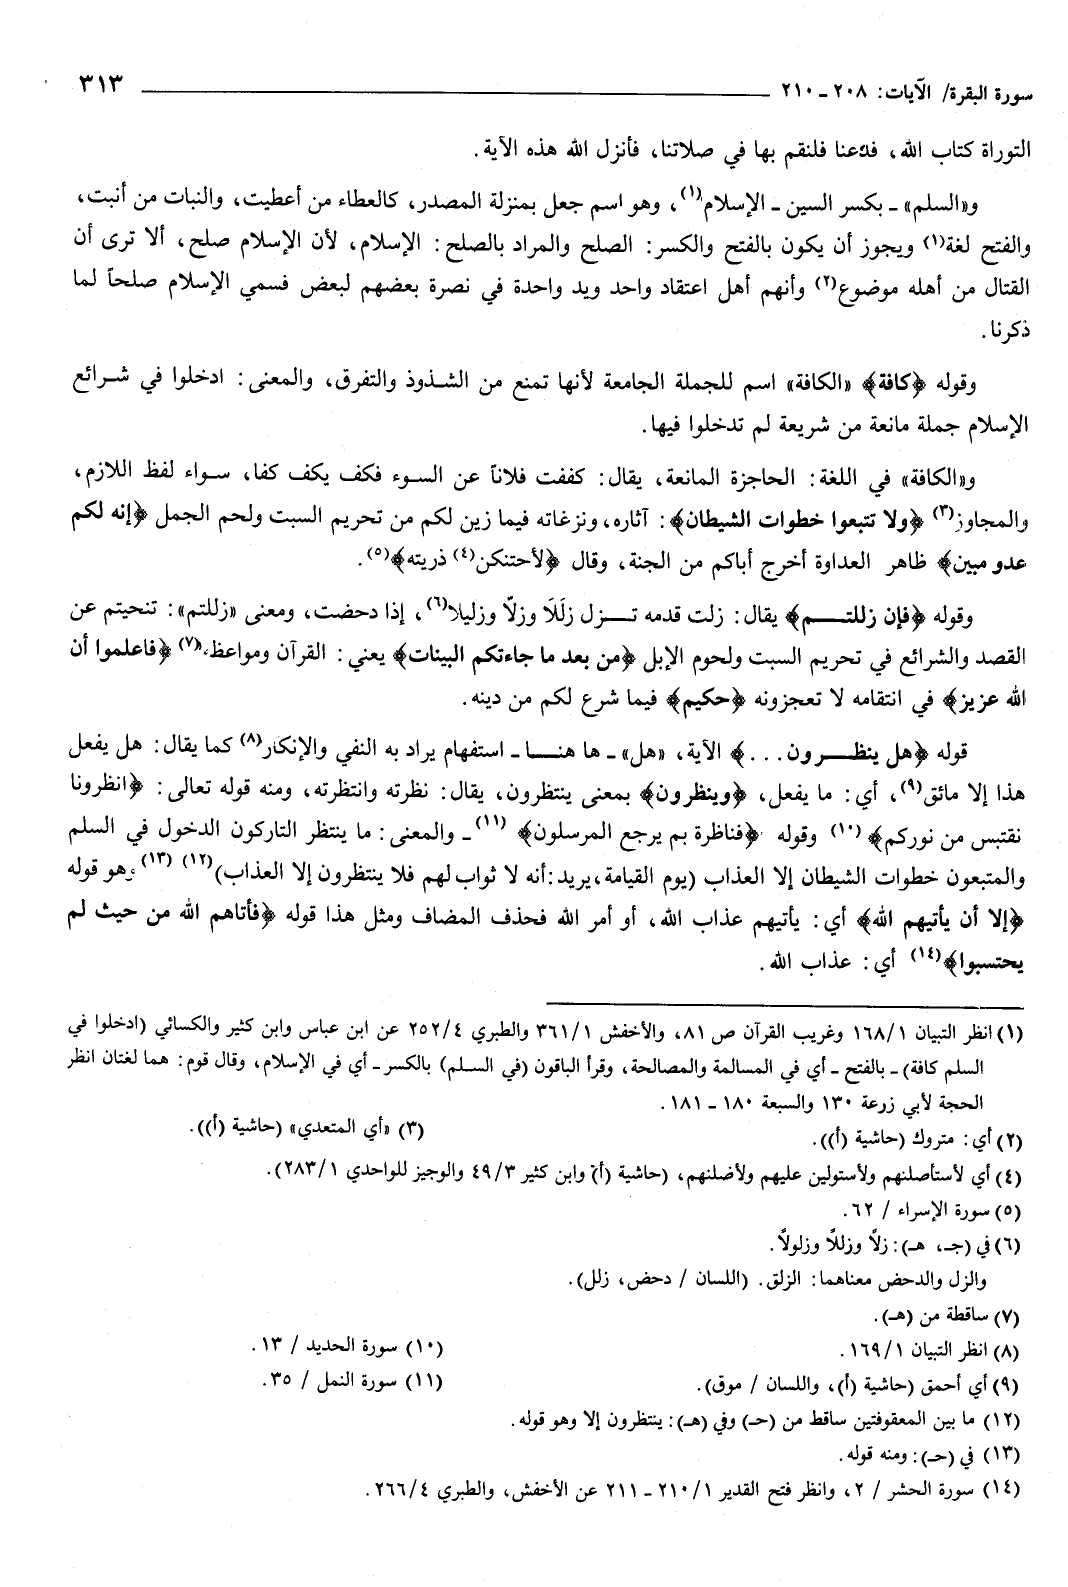 سورة البقرة/ الآيات: ٢٠٨ ـ ٢١٠ ٣١٣
التوراة كتاب الله، فدعنا فلنقم بها في صلاتنا، فأنزل الله هذه الآية.
و«السلم» ـ بكسر السين ـ الإسلام(١)، وهو اسم جعل بمنزلة المصدر، كالعطاء من أعطيت، والنبات من أنبت،
والفتح لغة(١) ويجوز أن يكون بالفتح والكسر: الصلح والمراد بالصلح: الإسلام، لأن الإسلام صلح، ألا ترى أن
القتال من أهله موضوع(٢) وأنهم أهل اعتقاد واحد ويد واحدة في نصرة بعضهم لبعض فسمي الإسلام صلحاً لما
ذكرنا.
وقوله ﴿كافة﴾ «الكافة» اسم للجملة الجامعة لأنها تمنع من الشذوذ والتفرق، والمعنى: ادخلوا في شرائع
الإسلام جملة مانعة من شريعة لم تدخلوا فيها.
و«الكافة» في اللغة: الحاجزة المانعة، يقال: كففت فلاناً عن السوء فكف يكف كفا، سواء لفظ اللازم،
والمجاوز(٣) ﴿ولا تتبعوا خطوات الشيطان﴾: آثاره، ونزغاته فيما زين لكم من تحريم السبت ولحم الجمل ﴿إنه لكم
عدو مبين﴾ ظاهر العداوة أخرج أباكم من الجنة، وقال ﴿لأحتنكن(٤) ذريته﴾(٥).
وقوله ﴿فإن زللتم﴾ يقال: زلت قدمه تزل زلَلَا وزلّا وزليلا(٦)، إذا دحضت، ومعنى «زللتم»: تنحيتم عن
القصد والشرائع في تحريم السبت ولحوم الإبل ﴿من بعد ما جاءتكم البينات﴾ يعني: القرآن ومواعظه(٧) ﴿فاعلموا أن
الله عزيز﴾ في انتقامه لا تعجزونه ﴿حكيم﴾ فيما شرع لكم من دينه.
قوله ﴿هل ينظرون...﴾ الآية، «هل» ـ ها هنا ـ استفهام يراد به النفي والإنكار(٨) كما يقال: هل يفعل
هذا إلا مائق(٩)، أي: ما يفعل، ﴿وينظرون﴾ بمعنى ينتظرون، يقال: نظرته وانتظرته، ومنه قوله تعالى: ﴿انظرونا
نقتبس من نوركم﴾(١٠) وقوله ﴿فناظرة بم يرجع المرسلون﴾(١١) ـ والمعنى: ما ينتظر التاركون الدخول في السلم
والمتبعون خطوات الشيطان إلا العذاب (يوم القيامة، يريد: أنه لا ثواب لهم فلا ينتظرون إلا العذاب)(١٢) (١٣) وهو قوله
﴿إلا أن يأتيهم الله﴾ أي: يأتيهم عذاب الله، أو أمر الله فحذف المضاف ومثل هذا قوله ﴿فأتاهم الله من حيث لم
يحتسبوا﴾(١٤) أي: عذاب الله.
(١) انظر التبيان ١/١٦٨ وغريب القرآن ص ٨١، والأخفش ١/٣٦١ والطبري ٤/٢٥٢ عن ابن عباس وابن كثير والكسائي (ادخلوا في
السلم كافة) ـ بالفتح ـ أي في المسالمة والمصالحة، وقرأ الباقون (في السلم) بالكسر ـ أي في الإسلام، وقال قوم: هما لغتان انظر
الحجة لأبي زرعة ١٣٠ والسبعة ١٨٠ ـ ١٨١.
(٢) أي: متروك (حاشية (أ)). (٣) «أي المتعدي» (حاشية (أ)).
(٤) أي لأستأصلنهم ولأستولين عليهم ولأضلنهم، (حاشية (أ) وابن كثير ٣/٤٩ والوجيز للواحدي ١/٢٨٣).
(٥) سورة الإسراء / ٦٢.
(٦) في (جـ، هـ): زلاً وزللاً وزلولاً.
والزل والدحض معناهما: الزلق. (اللسان / دحض، زلل).
(٧) ساقطة من (هـ).
(٨) انظر التبيان ١/١٦٩. (١٠) سورة الحديد / ١٣.
(٩) أي أحمق (حاشية (أ)، واللسان / موق). (١١) سورة النمل / ٣٥.
(١٢) ما بين المعقوفتين ساقط من (حـ) وفي (هـ): ينتظرون إلا وهو قوله.
(١٣) في (حـ): ومنه قوله.
(١٤) سورة الحشر / ٢، وانظر فتح القدير ١/٢١٠ ـ ٢١١ عن الأخفش، والطبري ٤/٢٦٦.